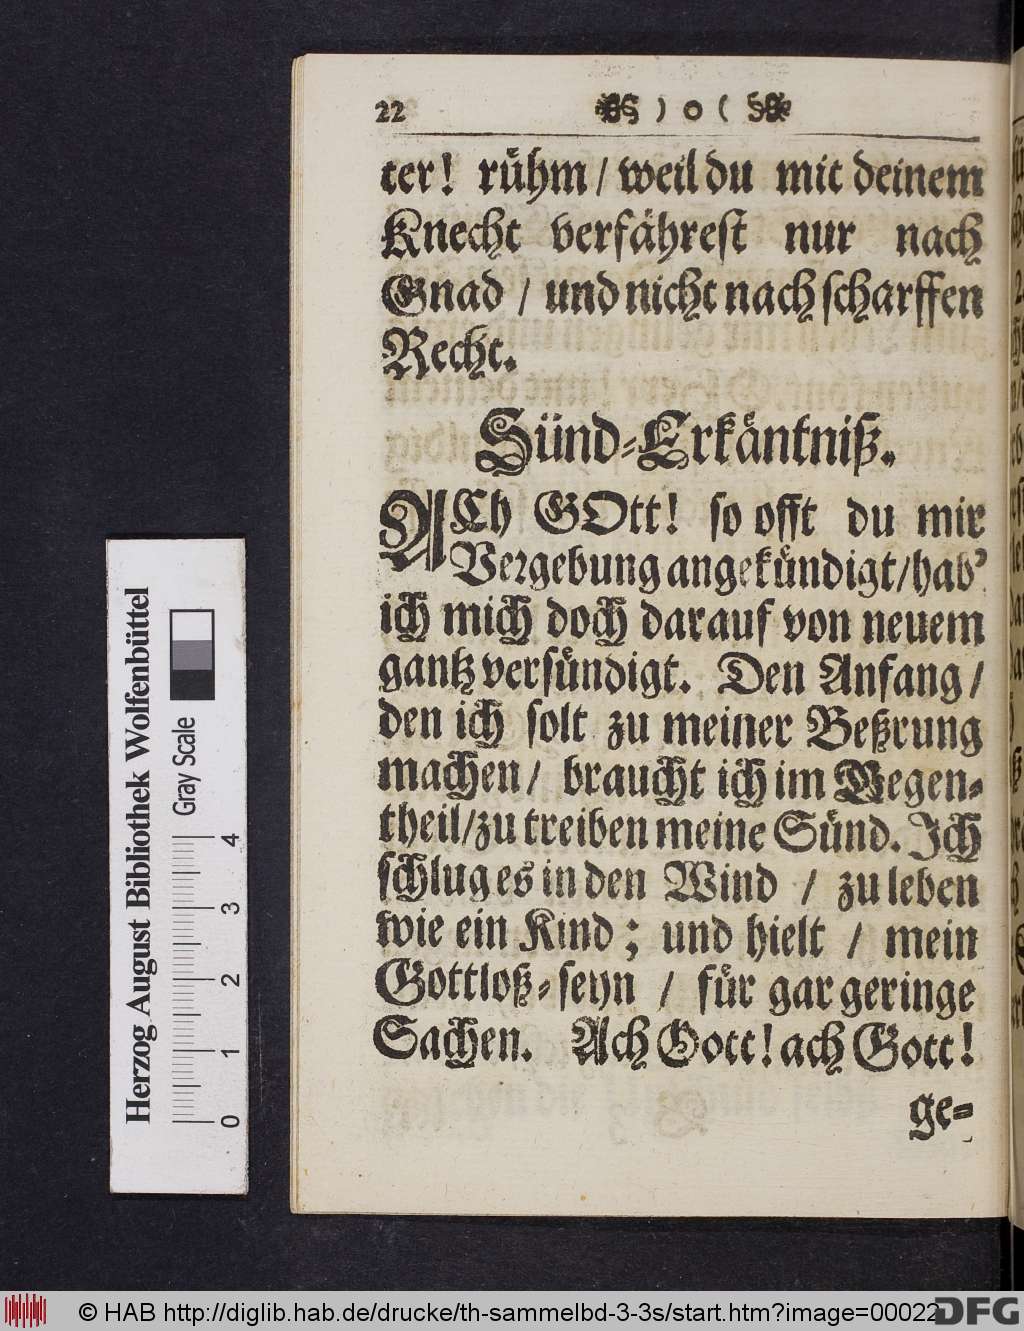 22 ) o (
ter! rühm / weil du mit deinem
Knecht verfährest nur nach
Gnad / und nicht nach scharffen
Recht.
Sünd-Erkäntniß.
ACh GOtt! so offt du mir
Vergebung angekündigt / hab'
ich mich doch darauf von neuem
gantz versündigt. Den Anfang /
den ich solt zu meiner Beßrung
machen / braucht ich im Gegen-
theil / zu treiben meine Sünd. Ich
schlug es in den Wind / zu leben
wie ein Kind; und hielt / mein
Gottloß-seyn / für gar geringe
Sachen. Ach Gott! ach Gott!
ge-
Herzog August Bibliothek Wolfenbüttel
Gray Scale
0 1 2 3 4
© HAB http://diglib.hab.de/drucke/th-sammelbd-3-3s/start.htm?image=00022
DFG